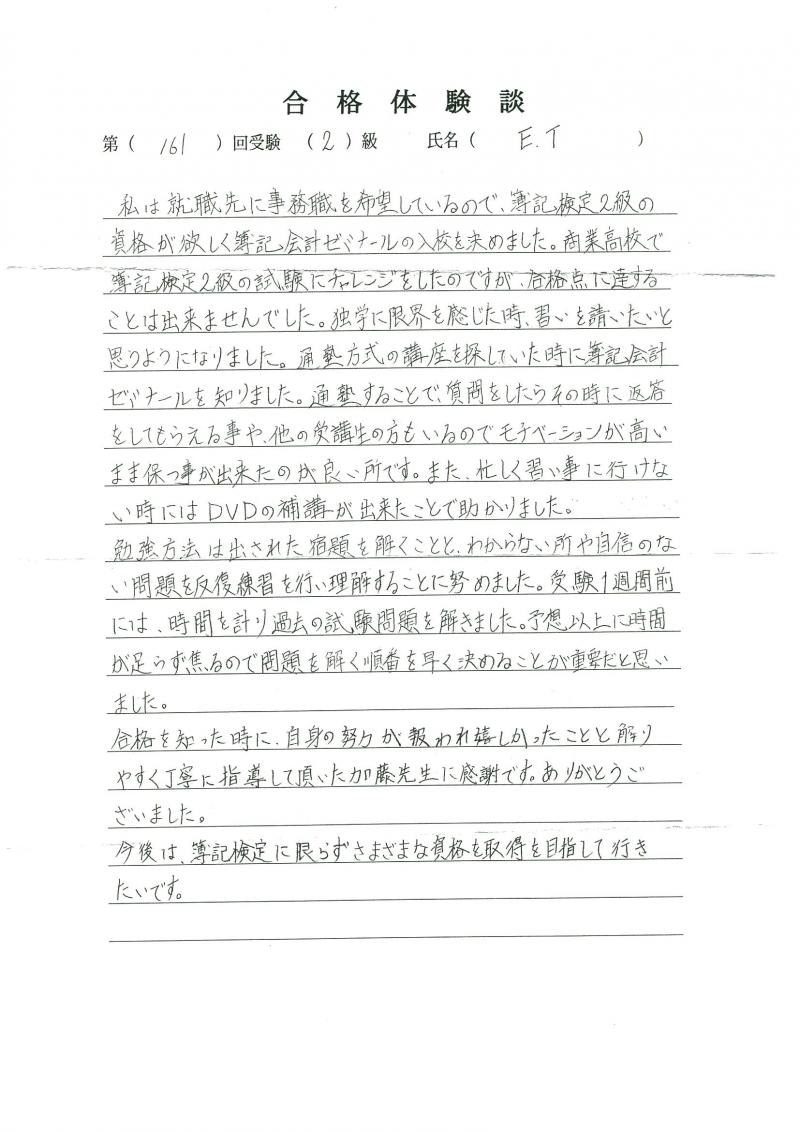 合格体験談
第（ 161 ）回受験 （2）級 氏名（ E.T ）
私は就職先に事務職を希望しているので、簿記検定2級の
資格が欲しく簿記会計ゼミナールの入校を決めました。商業高校で
簿記検定2級の試験にチャレンジをしたのですが、合格点に達する
ことは出来ませんでした。独学に限界を感じた時、習いを請いたいと
思うようになりました。通塾方式の講座を探していた時に簿記会計
ゼミナールを知りました。通塾することで、質問をしたらその時に返答
をしてもらえる事や、他の受講生の方もいるのでモチベーションが高い
まま保つ事が出来たのが良い所です。また、忙しく習い事に行けな
い時にはDVDの補講が出来たことで助かりました。
勉強方法は出された宿題を解くことと、わからない所や自信のな
い問題を反復練習を行い理解することに努めました。受験1週間前
には、時間を計り過去の試験問題を解きました。予想以上に時間
が足らず焦るので問題を解く順番を早く決めることが重要だと思い
ました。
合格を知った時に、自身の努力が報われ嬉しかったことと解り
やすく丁寧に指導して頂いた加藤先生に感謝です。ありがとうご
ざいました。
今後は、簿記検定に限らずさまざまな資格を取得を目指して行き
たいです。